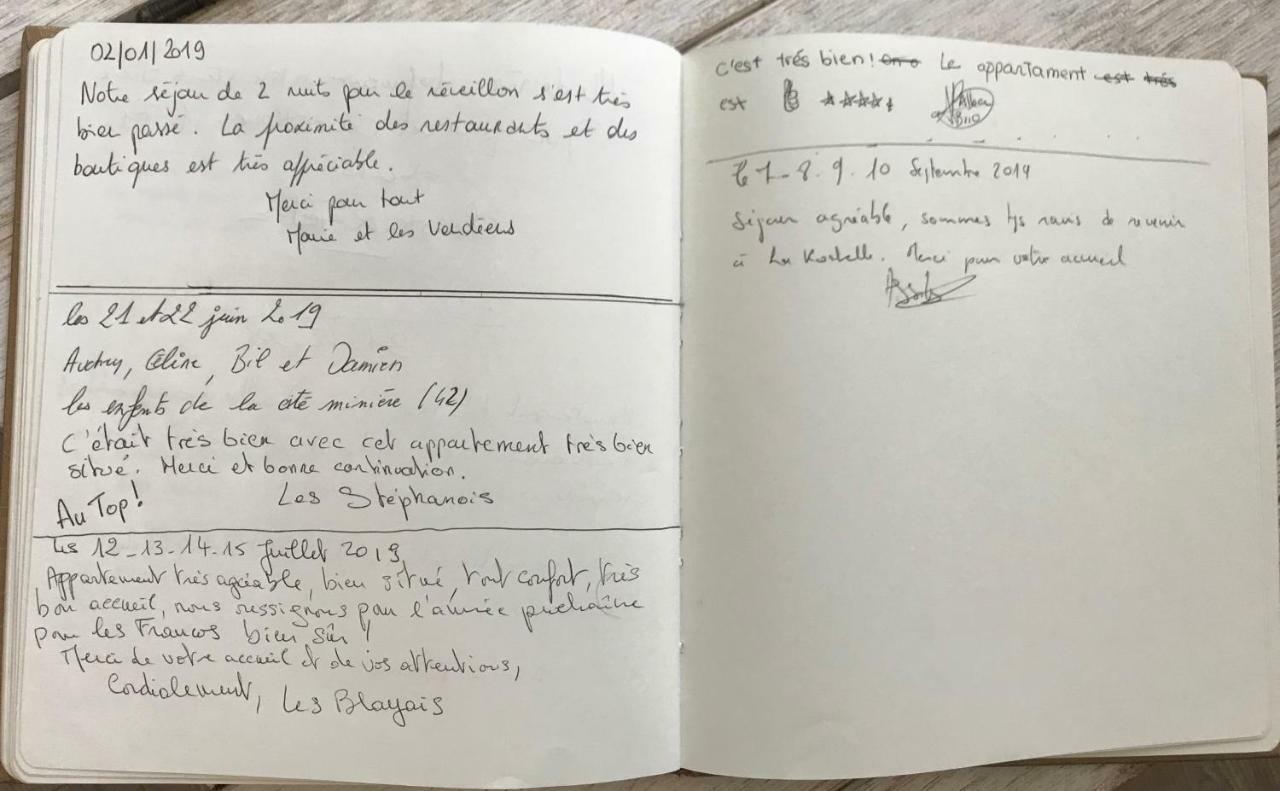 02/01/2019
Notre séjour de 2 nuits pour le réveillon s'est très
bien passé. La proximité des restaurants et des
boutiques est très appréciable.
Merci pour tout
Marie et les Vendéens
les 21 et 22 juin 2019
Audrey, Céline, Bil et Damien
les enfants de la cité minière (42)
C'était très bien avec cet appartement très bien
situé. Merci et bonne continuation.
Au Top!
Les Stéphanois
Les 12-13-14-15 Juillet 2019
Appartement très agréable, bien situé, tout confort, très
bon accueil, nous ressignons pour l'année prochaine
pour les Francos bien sûr!
Merci de votre accueil et de vos attentions,
Cordialement, Les Blayais
c'est trés bien! Le appartament est trés
est ★★★★★
8. 9. 10 Septembre 2019
Séjour agréable, sommes tjs ravis de revenir
à La Rochelle. Merci pour votre accueil